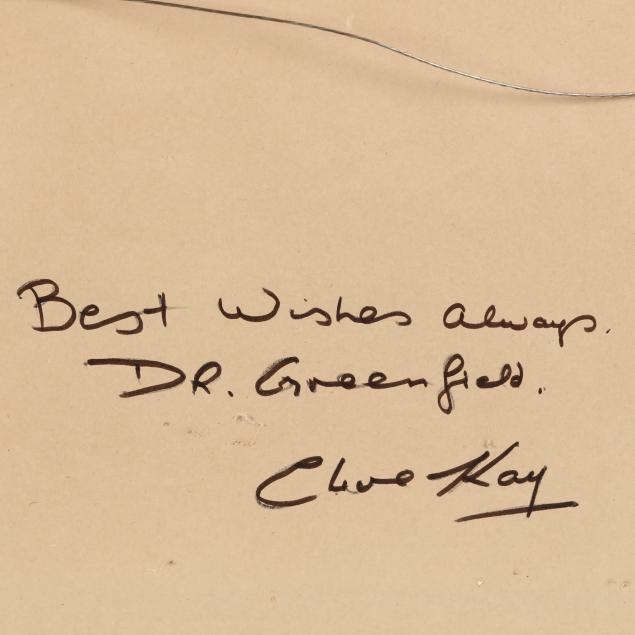 Best Wishes always.
DR. Greenfield.
Clive Kay